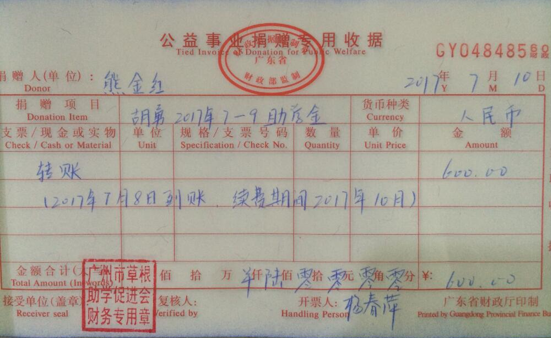 公益事业捐赠专用收据
Tied Invoice of Donation for Public Welfare
广东省
财政部监制
GY048485
捐赠人(单位): 熊金红 2017年 7月 10日
Donor Y M D
捐赠项目 胡勇 2017年7-9助学金 货币种类 人民币
Donation Item Currency
支票/现金或实物 单位 规格/支票号码 数量 单价 金额
Check / Cash or Material Unit Specification / Check No. Quantity Unit Price Amount
转账 600.00
(2017年7月8日到账、续费期间2017年10月)
金额合计(大写) 佰 拾 万 仟陆佰零拾零元零角零分 ¥: 600.00
Total Amount (In words)
广州市草根
助学促进会
财务专用章
接受单位(盖章) 复核人: 开票人: 杨春萍 广东省财政厅印制
Receiver seal Verified by Handling Person Printed by Guangdong Provincial Finance